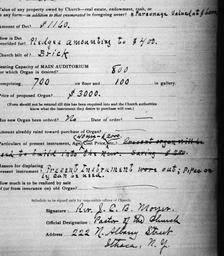 Value of any property owned by Church—real estate, endowment, cash, or
any form—in addition to that enumerated in foregoing answer? a Parsonage Value at $
Amount of Debt? $1160.
How is Debt
provided for? Pledges amounting to $400.
Church built of? Brick
Seating Capacity of MAIN AUDITORIUM
for which Organ is desired? 800
comprising 700 on floor and 100 in gallery.
Price of proposed Organ? $3000.
(Form should not be returned till this has been inquired into and the Church authorities
know what the instrument they desire to purchase will cost.)
Has new Organ been ordered? No Date of order—
Amount already raised toward purchase of Organ?
Particulars of present instrument, Age, Cost Price, etc.? Present organ will be
Reason for displacing
present instrument? Present instrument worn out; Pipe organ
is needed.
How much is to be realized by sale
(or from insurance) on old Organ?
Schedule to be signed only by responsible officer of Church.
Signature: Rev. J. E. B. Moyer.
Official Designation: Pastor of the Church
Address: 222 N. Albany Street
Ithaca, N. Y.